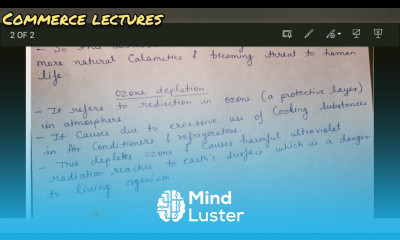 COMMERCE LECTURES
2 OF 2
more natural Calamities & becoming threat to human
life.
Ozone depletion
- It refers to reduction in ozone (a protective layer)
in atmosphere
- It Causes due to excessive use of Cooling Substances
in Air Conditioners & refrigerators.
- This depletes ozone & Causes harmful ultraviolet
radiation reaches to earth's surface which is a danger
to living organism.
Mind
Luster